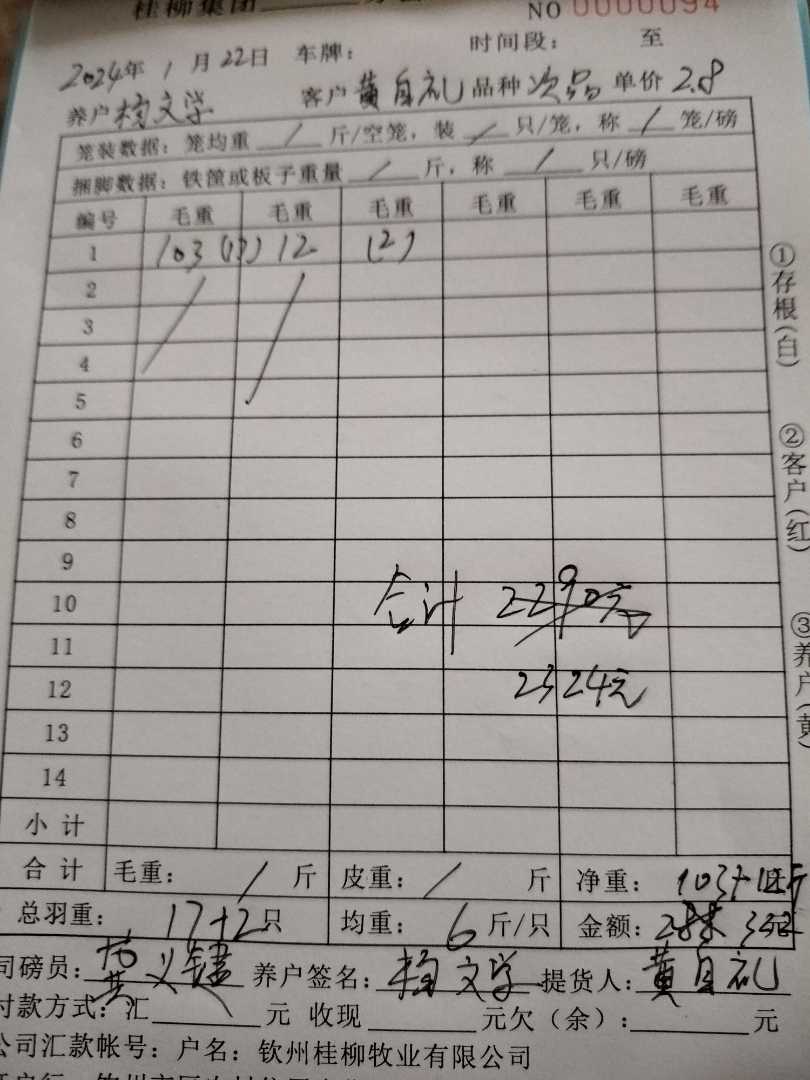 桂柳集团
NO 0000094
2024年 1月22日 车牌: 时间段: 至
养户 杨文学 客户 黄自礼 品种 次品 单价 2.8
笼装数据: 笼均重 / 斤/空笼, 装 / 只/笼, 称 / 笼/磅
捆脚数据: 铁筐或板子重量 / 斤, 称 / 只/磅
编号 毛重 毛重 毛重 毛重 毛重 毛重
1 103 (17) 12 (2)
2
3
4
5
6
7
8
9
10 合计 2290元
11
12 2324元
13
14
小计
合计 毛重: / 斤 皮重: / 斤 净重: 103+12斤
总羽重: 17+2只 均重: 6斤/只 金额:
司磅员: 养户签名: 杨文学 提货人: 黄自礼
付款方式: 汇 元 收现 元欠(余): 元
公司汇款帐号: 户名: 钦州桂柳牧业有限公司
①存根(白)
②客户(红)
③养户(黄)